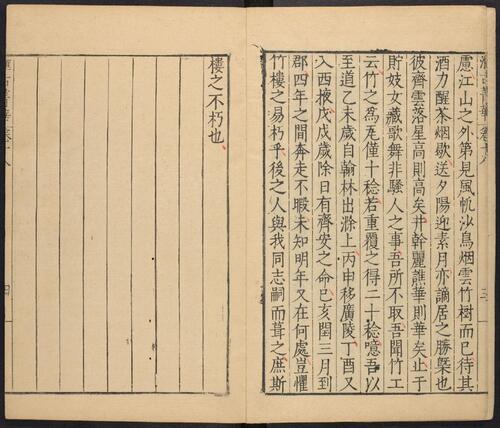 慮江山之外第見風帆沙鳥烟雲竹樹而已待其
酒力醒茶烟歇送夕陽迎素月亦謫居之勝槩也
彼齊雲落星高則高矣井幹麗譙華則華矣止于
貯妓女藏歌舞非騷人之事吾所不取吾聞竹工
云竹之爲瓦僅十稔若重覆之得二十稔噫吾以
至道乙未歲自翰林出滁上丙申移廣陵丁酉又
入西掖戊戌歲除日有齊安之命己亥閏三月到
郡四年之間奔走不暇未知明年又在何處豈懼
竹樓之易朽乎後之人與我同志嗣而葺之庶斯
樓之不朽也